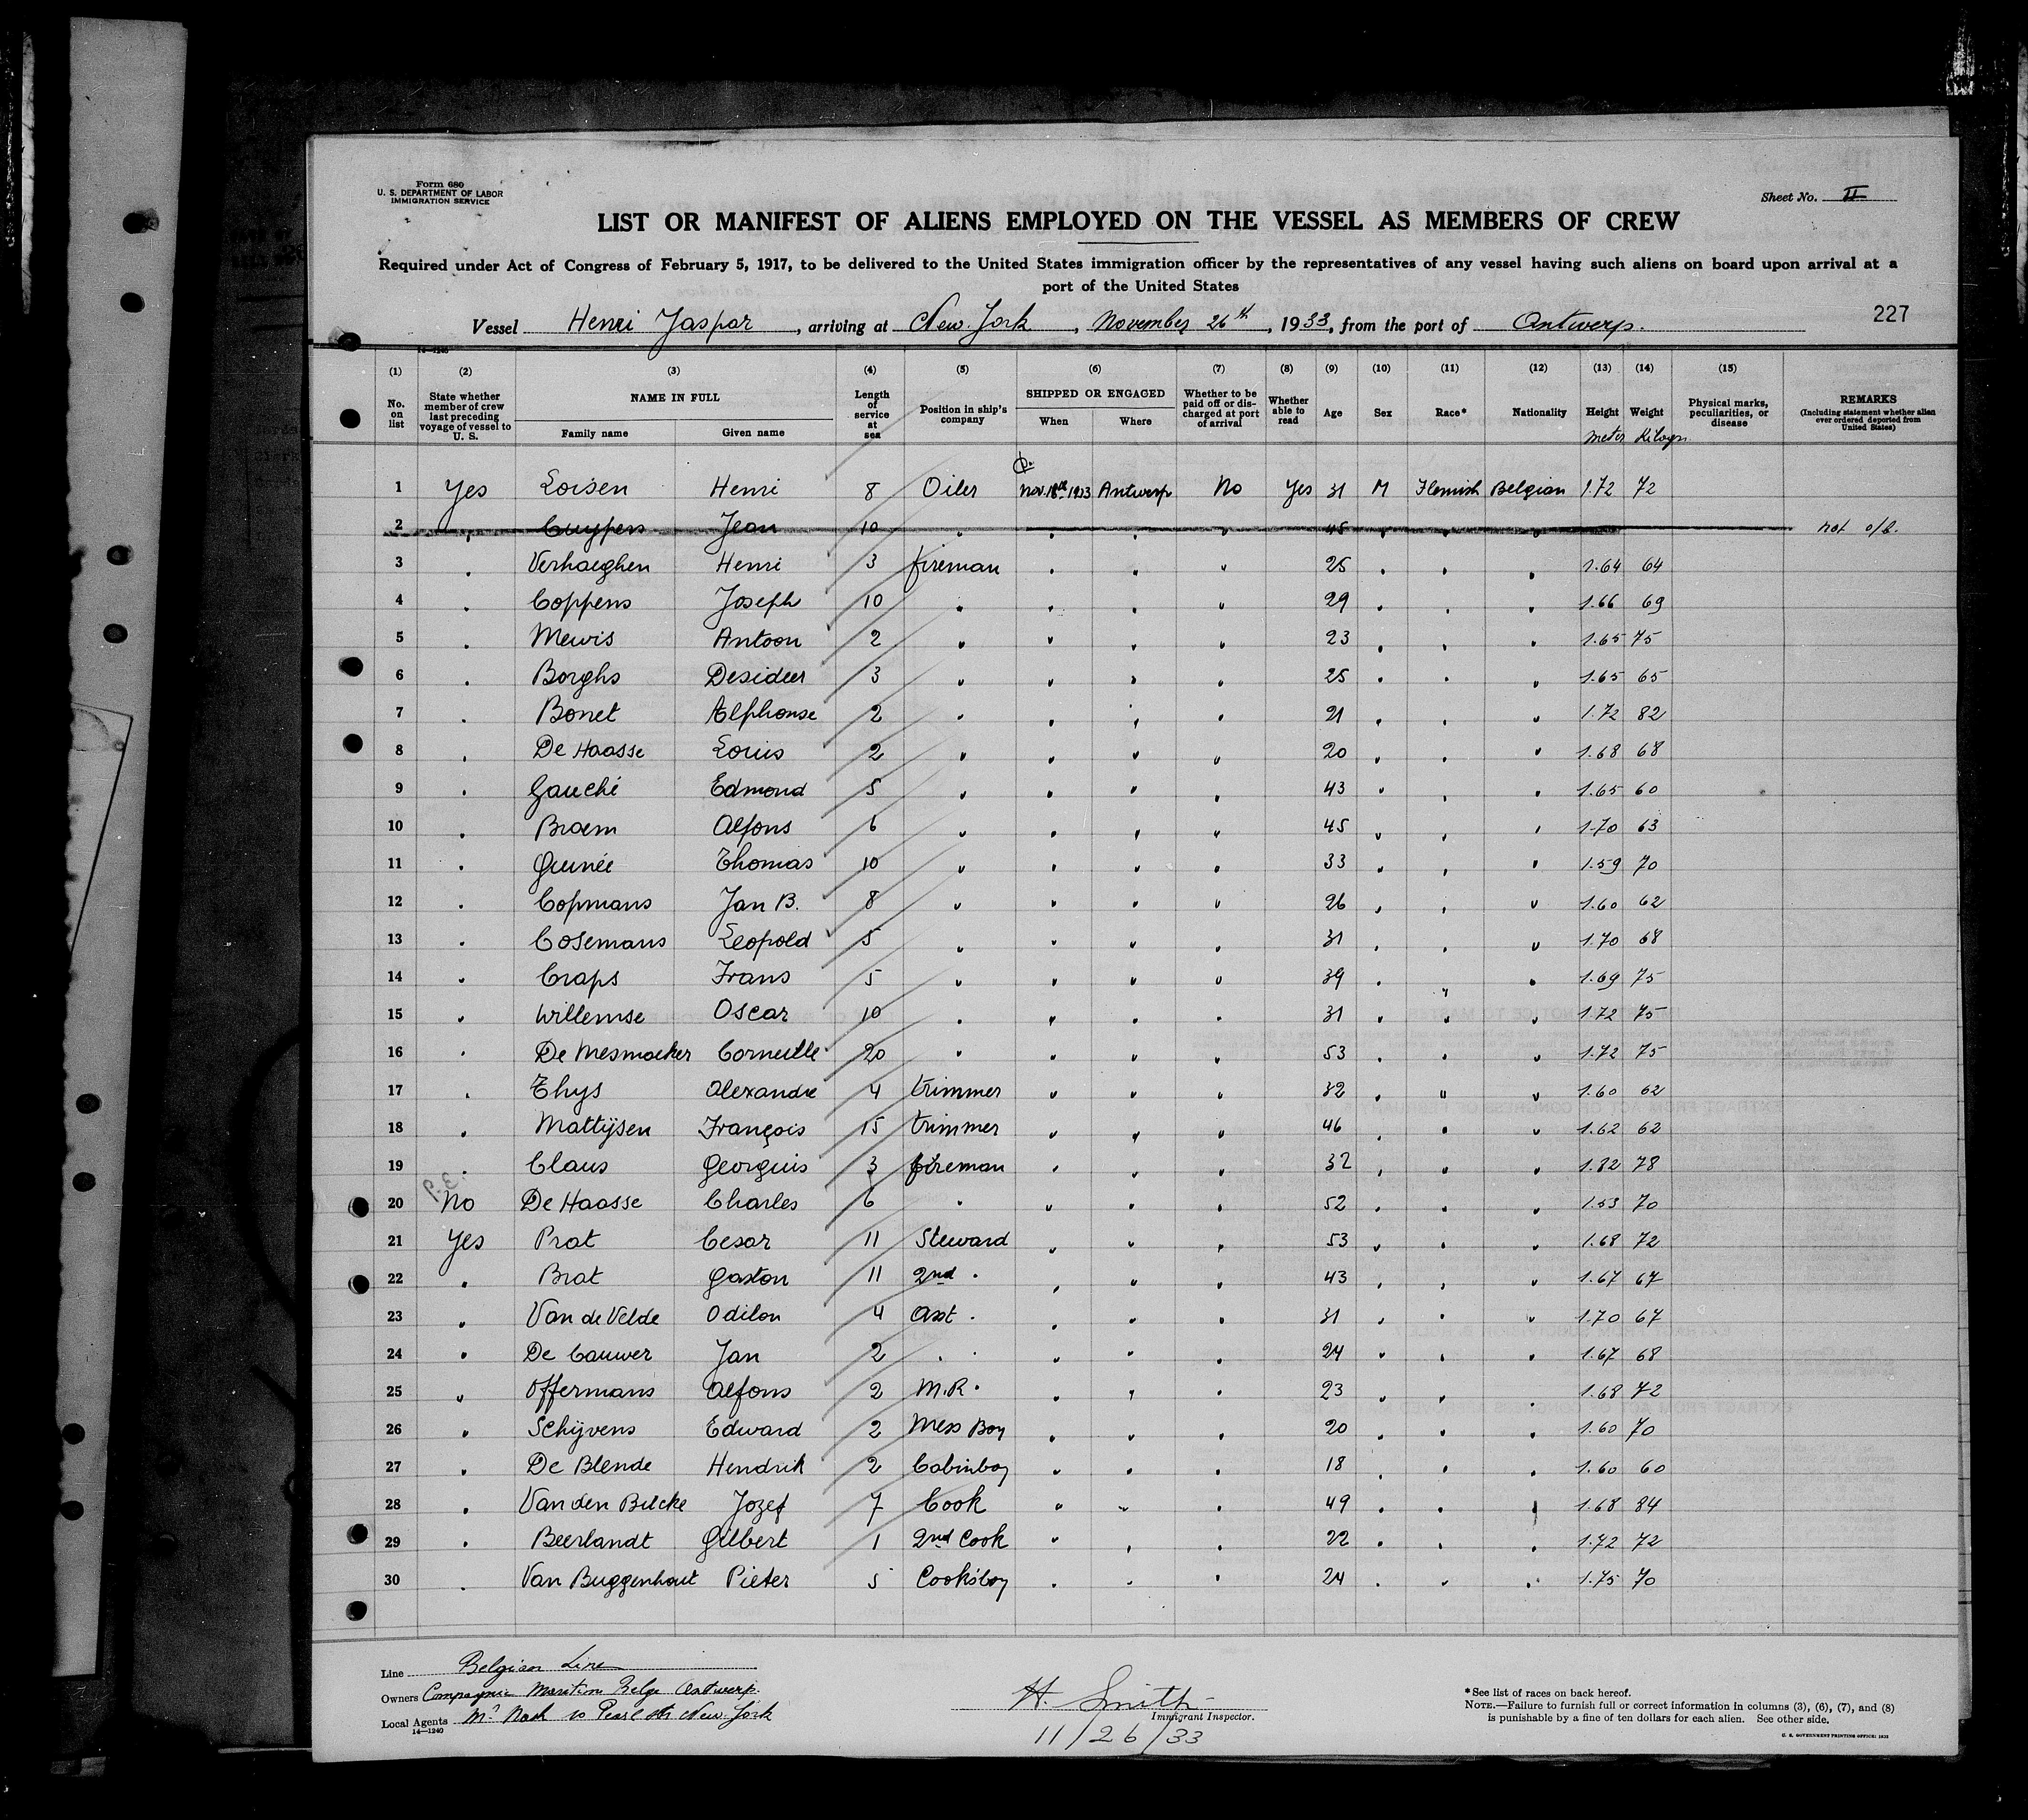 Form 680
U. S. DEPARTMENT OF LABOR
IMMIGRATION SERVICE
Sheet No. II
LIST OR MANIFEST OF ALIENS EMPLOYED ON THE VESSEL AS MEMBERS OF CREW
Required under Act of Congress of February 5, 1917, to be delivered to the United States immigration officer by the representatives of any vessel having such aliens on board upon arrival at a
port of the United States
Vessel Henri Jaspar, arriving at New York, November 26th, 1933, from the port of Antwerp.
227
14—1240
(1) (2) (3) (4) (5) (6) (7) (8) (9) (10) (11) (12) (13) (14) (15)
No. on list State whether member of crew last preceding voyage of vessel to U. S. NAME IN FULL Family name Given name Length of service at sea Position in ship's company SHIPPED OR ENGAGED When Where Whether to be paid off or discharged at port of arrival Whether able to read Age Sex Race* Nationality Height Weight Physical marks, peculiarities, or disease REMARKS (Including statement whether alien ever ordered deported from United States)
meter Kilogr.
1 Yes Loisen Henri 8 Oiler Nov. 18th 1933 Antwerp No Yes 31 M Flemish Belgian 1.72 72
2 " Cuypens Jean 10 " " " " 45 " " " not o/b.
3 " Verhaeghen Henri 3 fireman " " " 25 " " " 1.64 64
4 " Coppens Joseph 10 " " " " 29 " " " 1.66 69
5 " Mewis Antoon 2 " " " " 23 " " " 1.65 75
6 " Borghs Desideer 3 " " " " 25 " " " 1.65 65
7 " Bonet Alphonse 2 " " " " 21 " " " 1.72 82
8 " De Haasse Louis 2 " " " " 20 " " " 1.68 68
9 " Gauché Edmond 5 " " " " 43 " " " 1.65 60
10 " Braem Alfons 6 " " " " 45 " " " 1.70 63
11 " Guinée Thomas 10 " " " " 33 " " " 1.59 70
12 " Copmans Jan B. 8 " " " " 26 " " " 1.60 62
13 " Cosemans Leopold 5 " " " " 31 " " " 1.70 68
14 " Craps Frans 5 " " " " 39 " " " 1.69 75
15 " Willemse Oscar 10 " " " " 31 " " " 1.72 75
16 " De Mesmaeker Corneille 20 " " " " 53 " " " 1.72 75
17 " Thys Alexandre 4 trimmer " " " 32 " " " 1.60 62
18 " Mattijsen François 15 trimmer " " " 46 " " " 1.62 62
19 " Claus Georguis 3 fireman " " " 32 " " " 1.82 78
20 No De Haasse Charles 6 " " " " 52 " " " 1.53 70
21 Yes Prat Cesar 11 Steward " " " 53 " " " 1.68 72
22 " Brat Gaston 11 2nd " " " " 43 " " " 1.67 67
23 " Van de Velde Odilon 4 asst " " " " 31 " " " 1.70 67
24 " De Cauwer Jan 2 " " " " " 24 " " " 1.67 68
25 " Offermans Alfons 2 M.R. " " " " 23 " " " 1.68 72
26 " Schijvens Edward 2 Mess Boy " " " 20 " " " 1.60 70
27 " De Blende Hendrik 2 Cabinboy " " " 18 " " " 1.60 60
28 " Van den Bulcke Jozef 7 Cook " " " 49 " " " 1.68 84
29 " Beerlandt Gilbert 1 2nd Cook " " " 22 " " " 1.72 72
30 " Van Buggenhout Pieter 5 Cooksboy " " " 24 " " " 1.75 70
Line Belgian Line
Owners Compagnie Maritim Belge Antwerp.
Local Agents Mr Nash 10 Pearl str New York
14—1240
H. Smith
Immigrant Inspector.
11/26/33
*See list of races on back hereof.
NOTE.—Failure to furnish full or correct information in columns (3), (6), (7), and (8)
is punishable by a fine of ten dollars for each alien. See other side.
U. S. GOVERNMENT PRINTING OFFICE: 1932